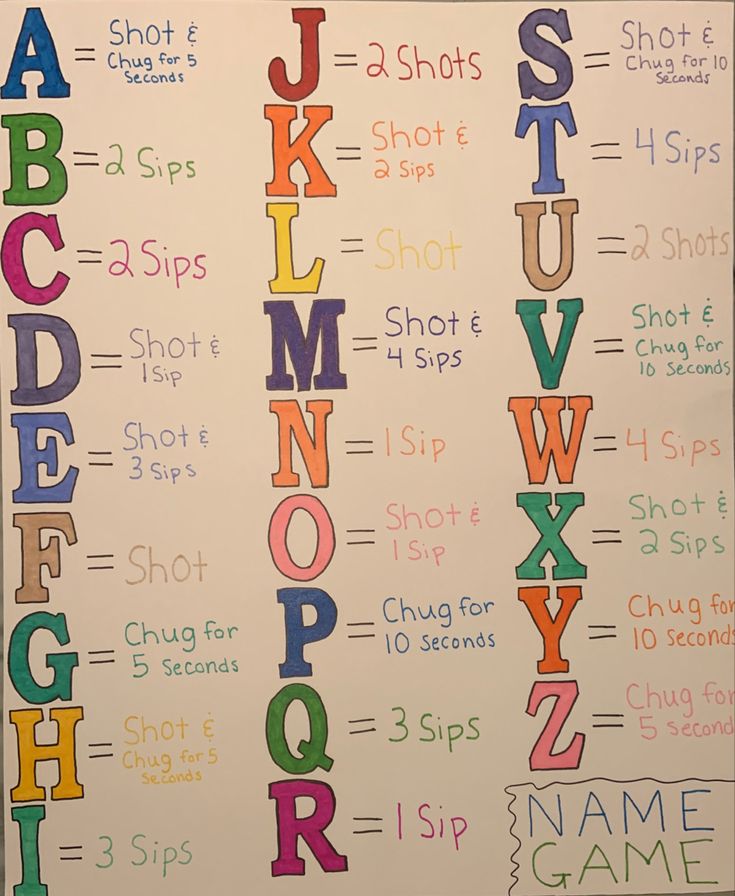 A = Shot &
Chug for 5
Seconds
B = 2 Sips
C = 2 Sips
D = Shot &
1 Sip
E = Shot &
3 Sips
F = Shot
G = Chug for
5 Seconds
H = Shot &
Chug for 5
Seconds
I = 3 Sips
J = 2 Shots
K = Shot &
2 Sips
L = Shot
M = Shot &
4 Sips
N = 1 Sip
O = Shot &
1 Sip
P = Chug for
10 Seconds
Q = 3 Sips
R = 1 Sip
S = Shot &
Chug for 10
Seconds
T = 4 Sips
U = 2 Shots
V = Shot &
Chug for
10 Seconds
W = 4 Sips
X = Shot &
2 Sips
Y = Chug for
10 Second
Z = Chug for
5 Second
NAME
GAME